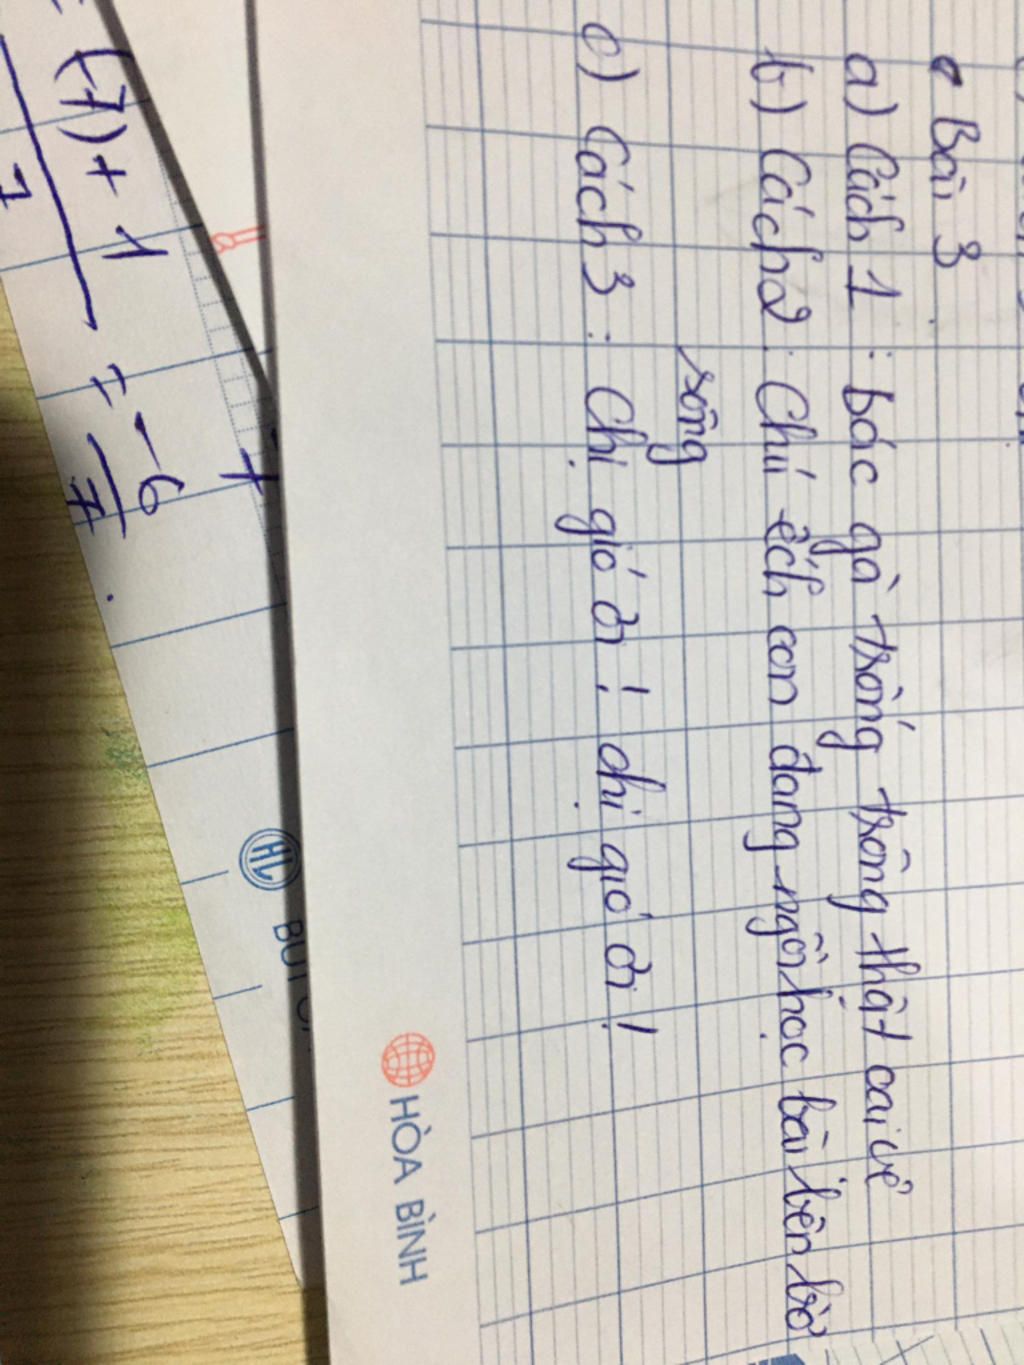 • Bài 3
a) Cách 1 : bác gà trống trông thật oai vệ
b) Cách 2 : Chú ếch con đang ngồi học bài bên bờ
sông
c) Cách 3 : Chị gió ơi ! chị gió ơi !
HÒA BÌNH
HL BÚT
= (-7) + 1 = -6
7 7 .